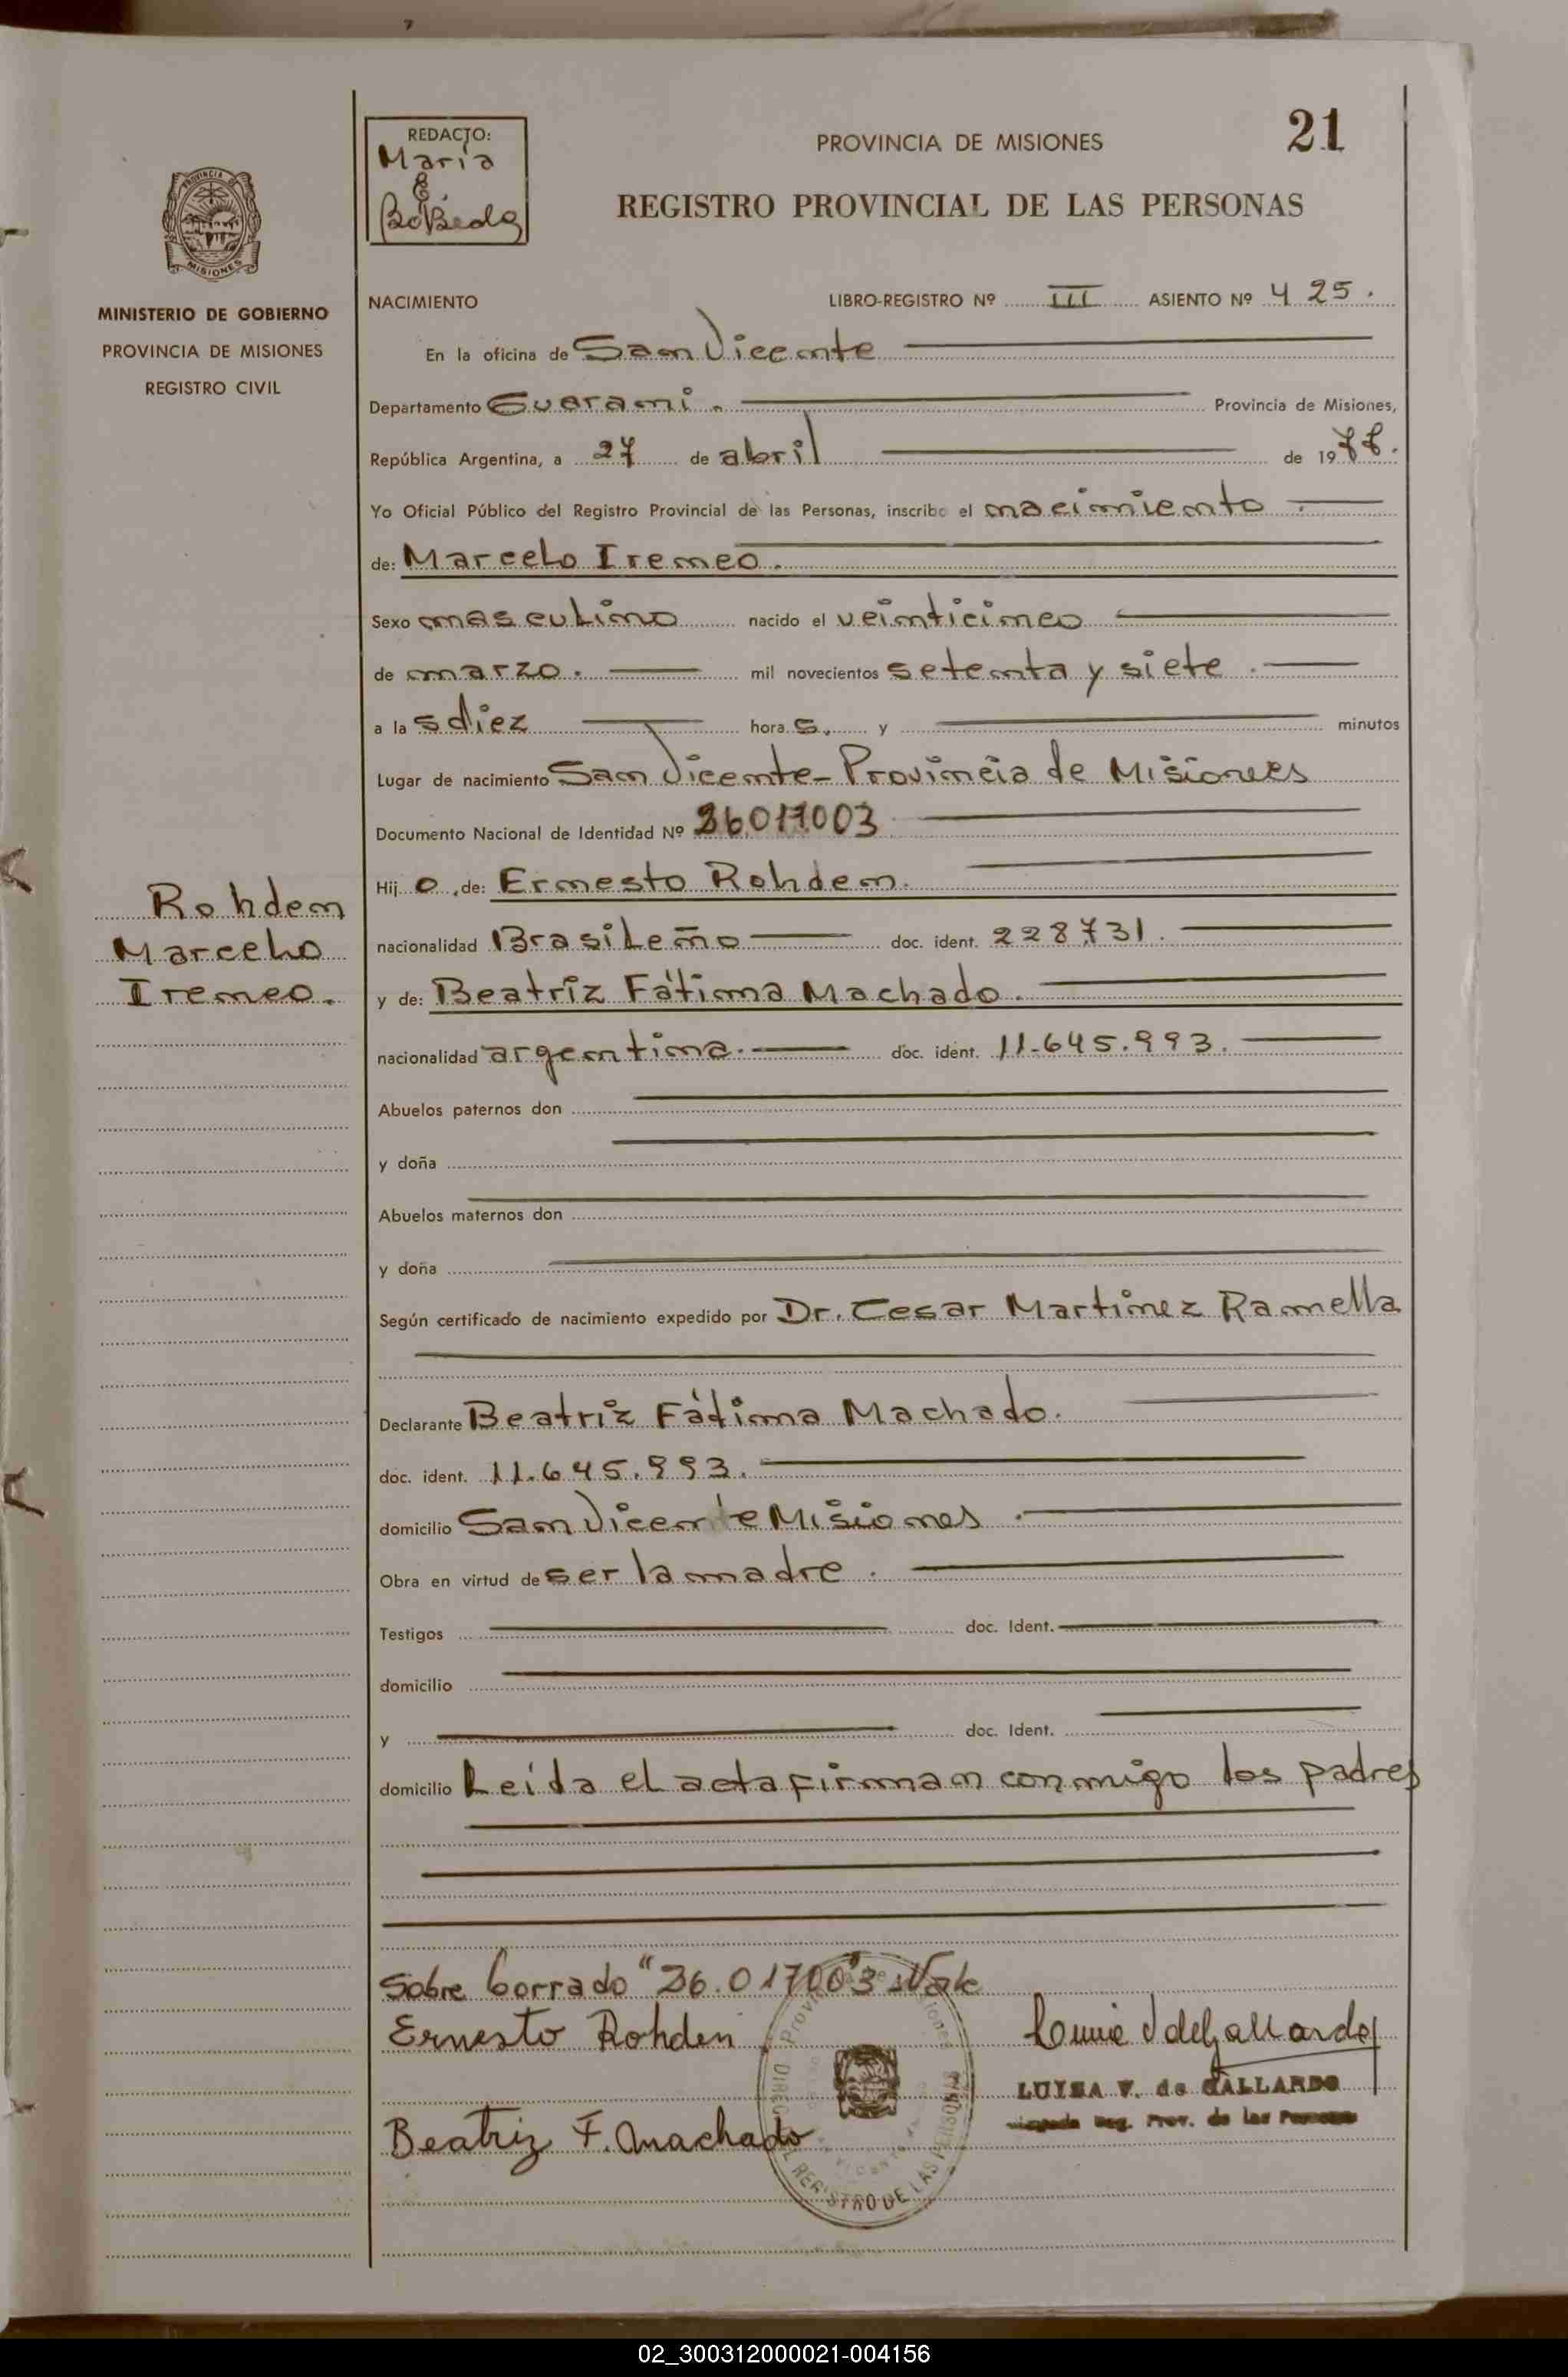 21
REDACTO:
María
E.
Bobeda
PROVINCIA DE MISIONES
REGISTRO PROVINCIAL DE LAS PERSONAS
PROVINCIA DE
MISIONES
MINISTERIO DE GOBIERNO
PROVINCIA DE MISIONES
REGISTRO CIVIL
NACIMIENTO LIBRO-REGISTRO Nº III ASIENTO Nº 425.
En la oficina de San Vicente
Departamento Guarani. Provincia de Misiones,
República Argentina, a 27 de abril de 1977.
Yo Oficial Público del Registro Provincial de las Personas, inscribo el nacimiento
de: Marcelo Ireneo.
Sexo masculino nacido el veinticinco
de marzo. mil novecientos setenta y siete.
a las diez horas. y minutos
Lugar de nacimiento San Vicente - Provincia de Misiones
Documento Nacional de Identidad Nº 26.017.003
Hijo, de: Ernesto Rohden.
Rohden
Marcelo
Ireneo.
nacionalidad Brasileño doc. ident. 228731.
y de: Beatríz Fátima Machado.
nacionalidad argentina. doc. ident. 11.645.993.
Abuelos paternos don
y doña
Abuelos maternos don
y doña
Según certificado de nacimiento expedido por Dr. Cesar Martinez Ramella
Declarante Beatriz Fátima Machado.
doc. ident. 11.645.993.
domicilio San Vicente Misiones.
Obra en virtud de ser la madre.
Testigos doc. Ident.
domicilio
y doc. Ident.
domicilio Leída el acta firman conmigo los padres
Sobre borrado "26.017003" Vale
Ernesto Rohden
LUISA V. de GALLARDO
Reg. Prov. de las Personas
Beatriz F. Machado
REGISTRO DE LAS PERSONAS
02_300312000021-004156